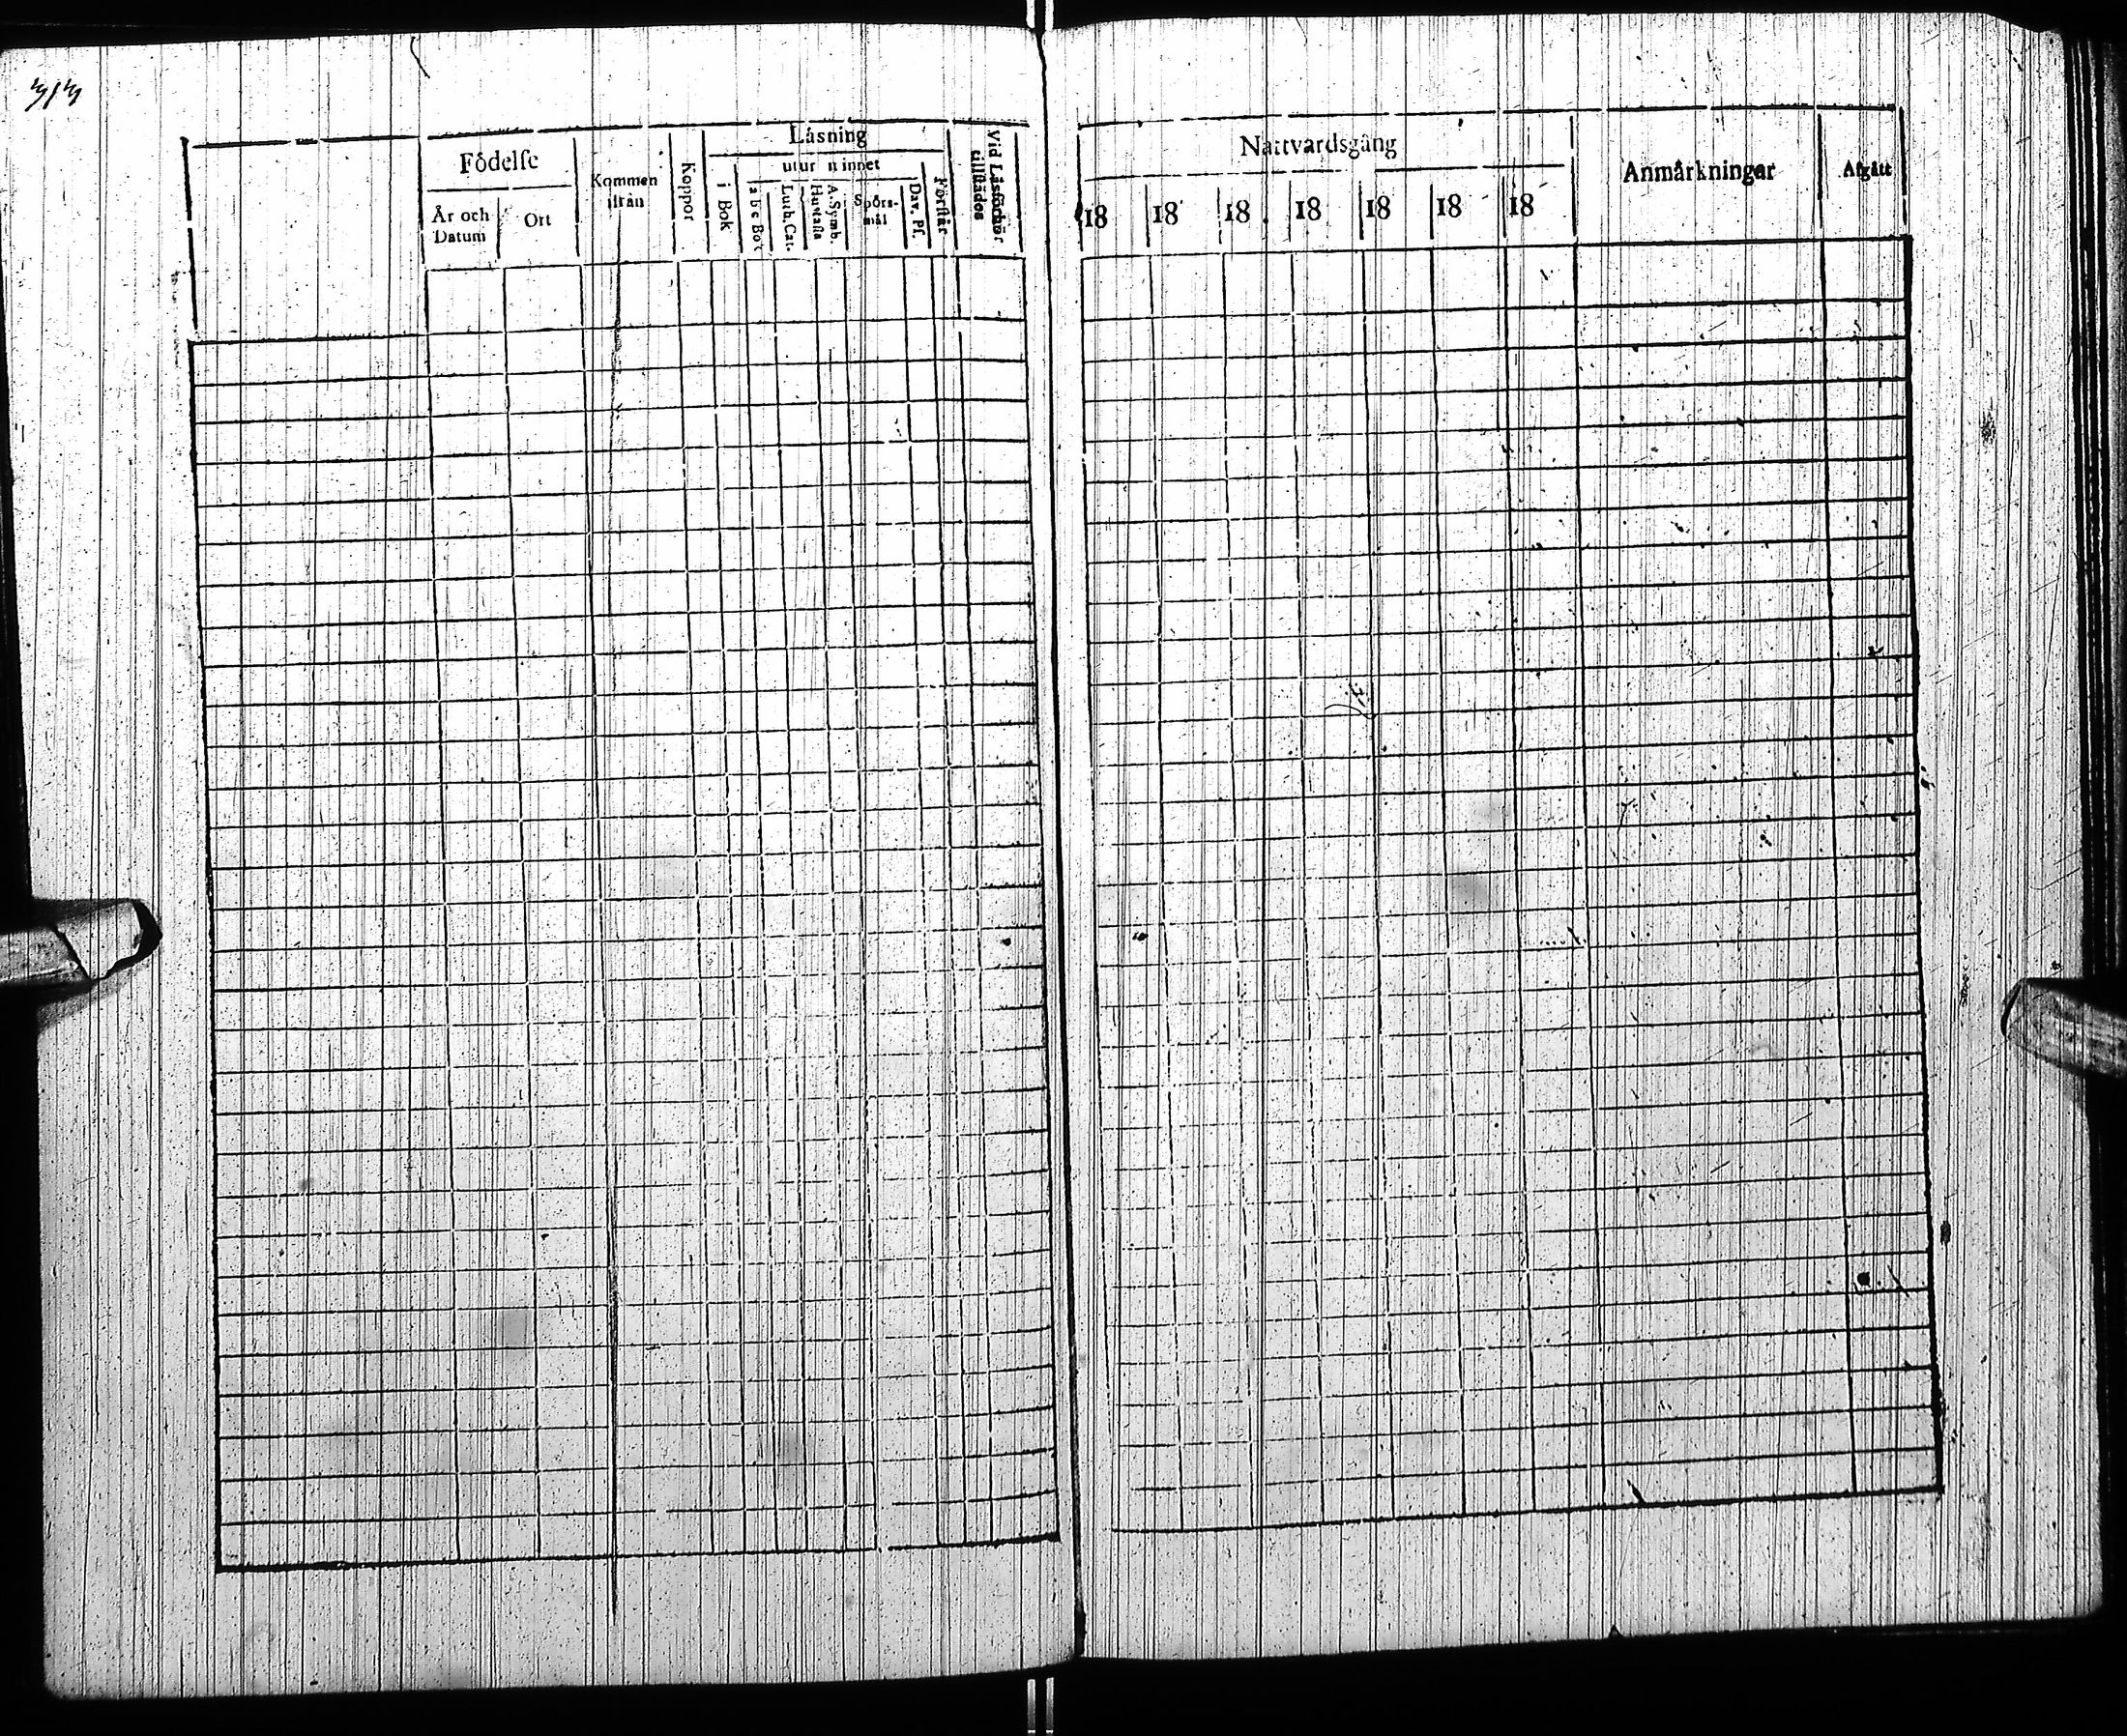 313
Födelse
År och Datum
Ort
Kommen ifrån
Koppor
Läsning
i Bok
utur minnet
a b c Bok
Luth. Cat.
A. Symb. Hustafla
Spörsmål
Dav. Ps.
Förstår
Vid Läsförhör tillstädes
Nattvardsgång
18 18 18 18 18 18 18
Anmärkningar
Afgått